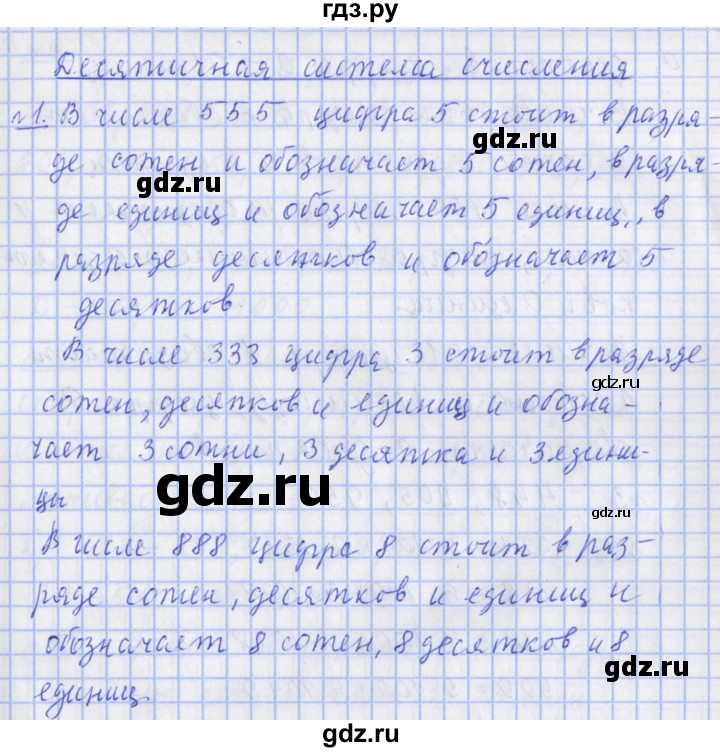 гдз.ру
Десятичная система счисления
№1. В числе 555 цифра 5 стоит в разря-
де сотен и обозначает 5 сотен, в разря-
gdz.ru
де единиц и обозначает 5 единиц, в
разряде десятков и обозначает 5
десятков.
gdz.ru
В числе 333 цифра 3 стоит в разряде
gdz.ru
сотен, десятков и единиц и обозна-
чает 3 сотни, 3 десятка и 3 едини-
цы
gdz.ru
gdz.ru
В числе 888 цифра 8 стоит в раз-
ряде сотен, десятков и единиц и
обозначает 8 сотен, 8 десятков и 8
единиц.
gdz.ru
gdz.ru